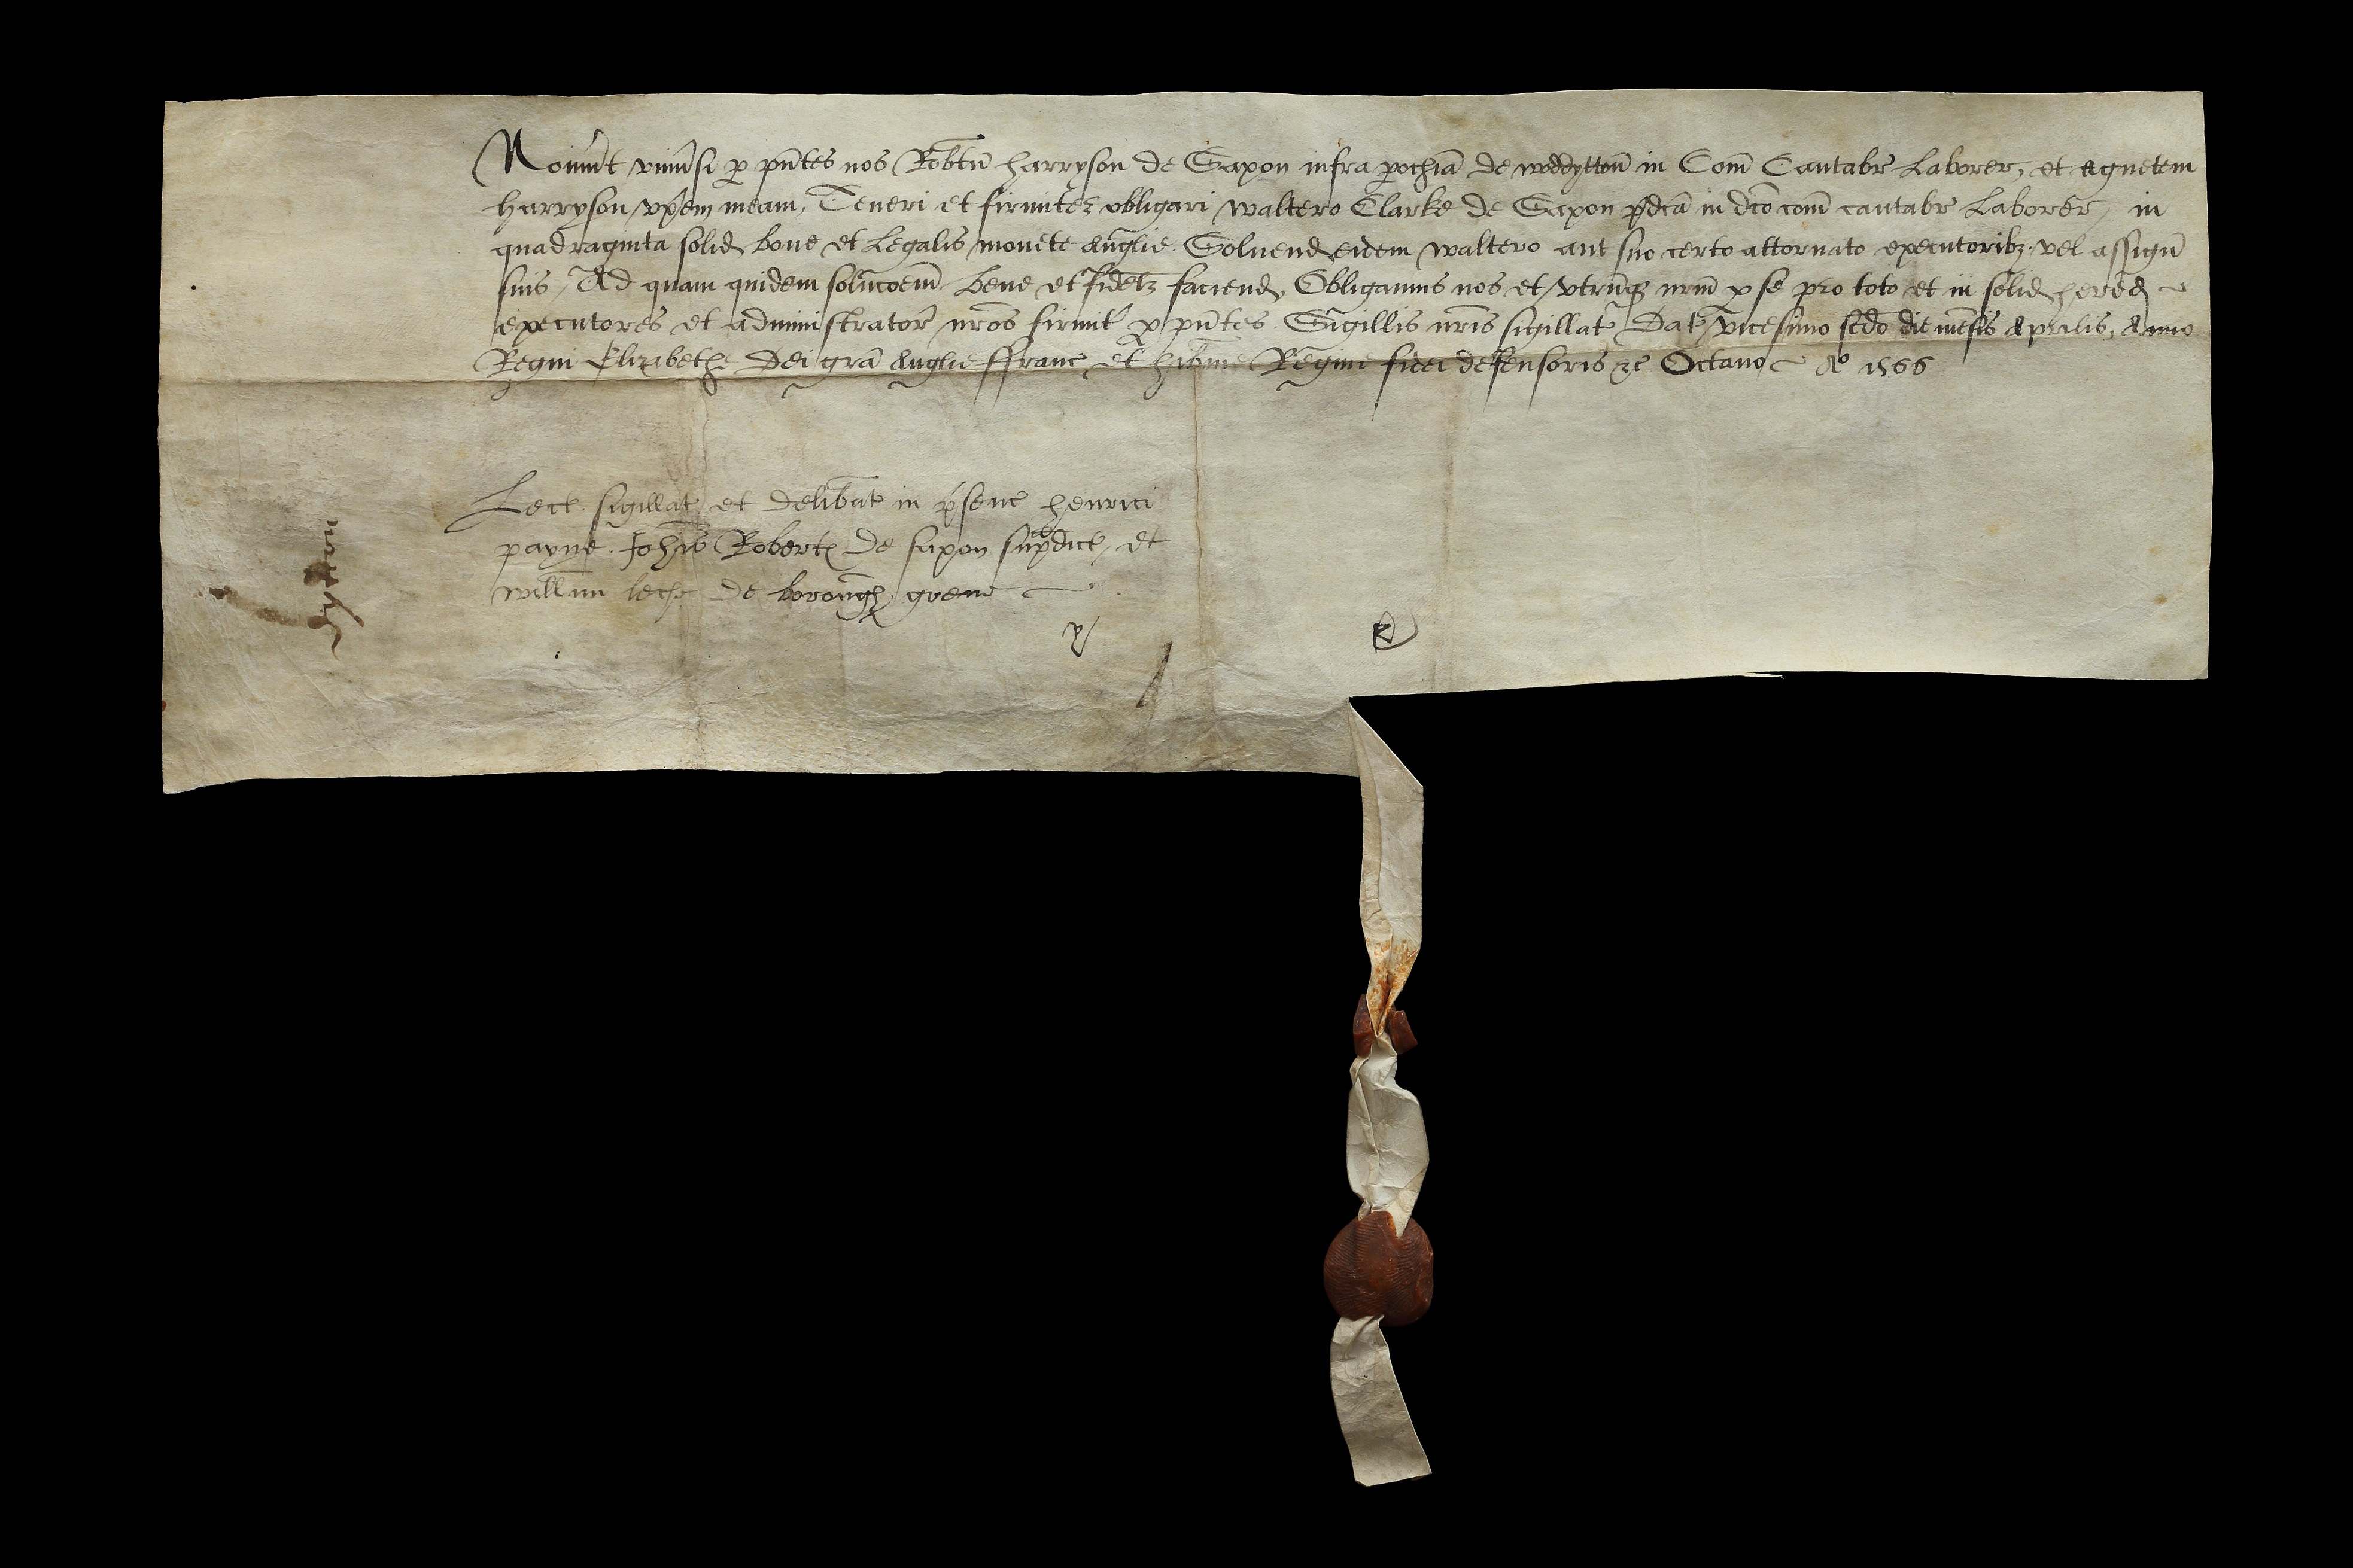 Noiũnt vniũsi p pñtes nos Robtũ harryson de Saxon infra pochiã de woddyttoñ in Com̃ Cantabr̃ Laborer, et Agnetem
harryson vxẽm meam, Teneri et firmitez obligari waltero Clarke de Saxon p̃dcã in dc̃o com̃ cantabr̃ Laborer, in
quadraginta solid bone et Legalis monete Anglie Soluend eidem waltero aut suo certo attornato executoribz vel assign̄
suis / Ad quam quidem soluc̃oem̃ bene et fidelz faciend, Obligamus nos et vtrũq nrm̃ p se pro toto et in solid hered
executores et administrator̃ nrõs firmit̃ p pñtes Sigillis nrĩs sigillat Dat vicesimo scdõ die mẽsis Aprilis, Anno
Regni Elizabethe Dei grã Anglie ffranc et hib̃nie Regine fidei defensoris &c Octauo A° 1566
Lect sigillat et delib̃at in p̃senc henrici
payne Joh̃is Robert de saxon sup̃dict, et
will̃im leche de borough grene